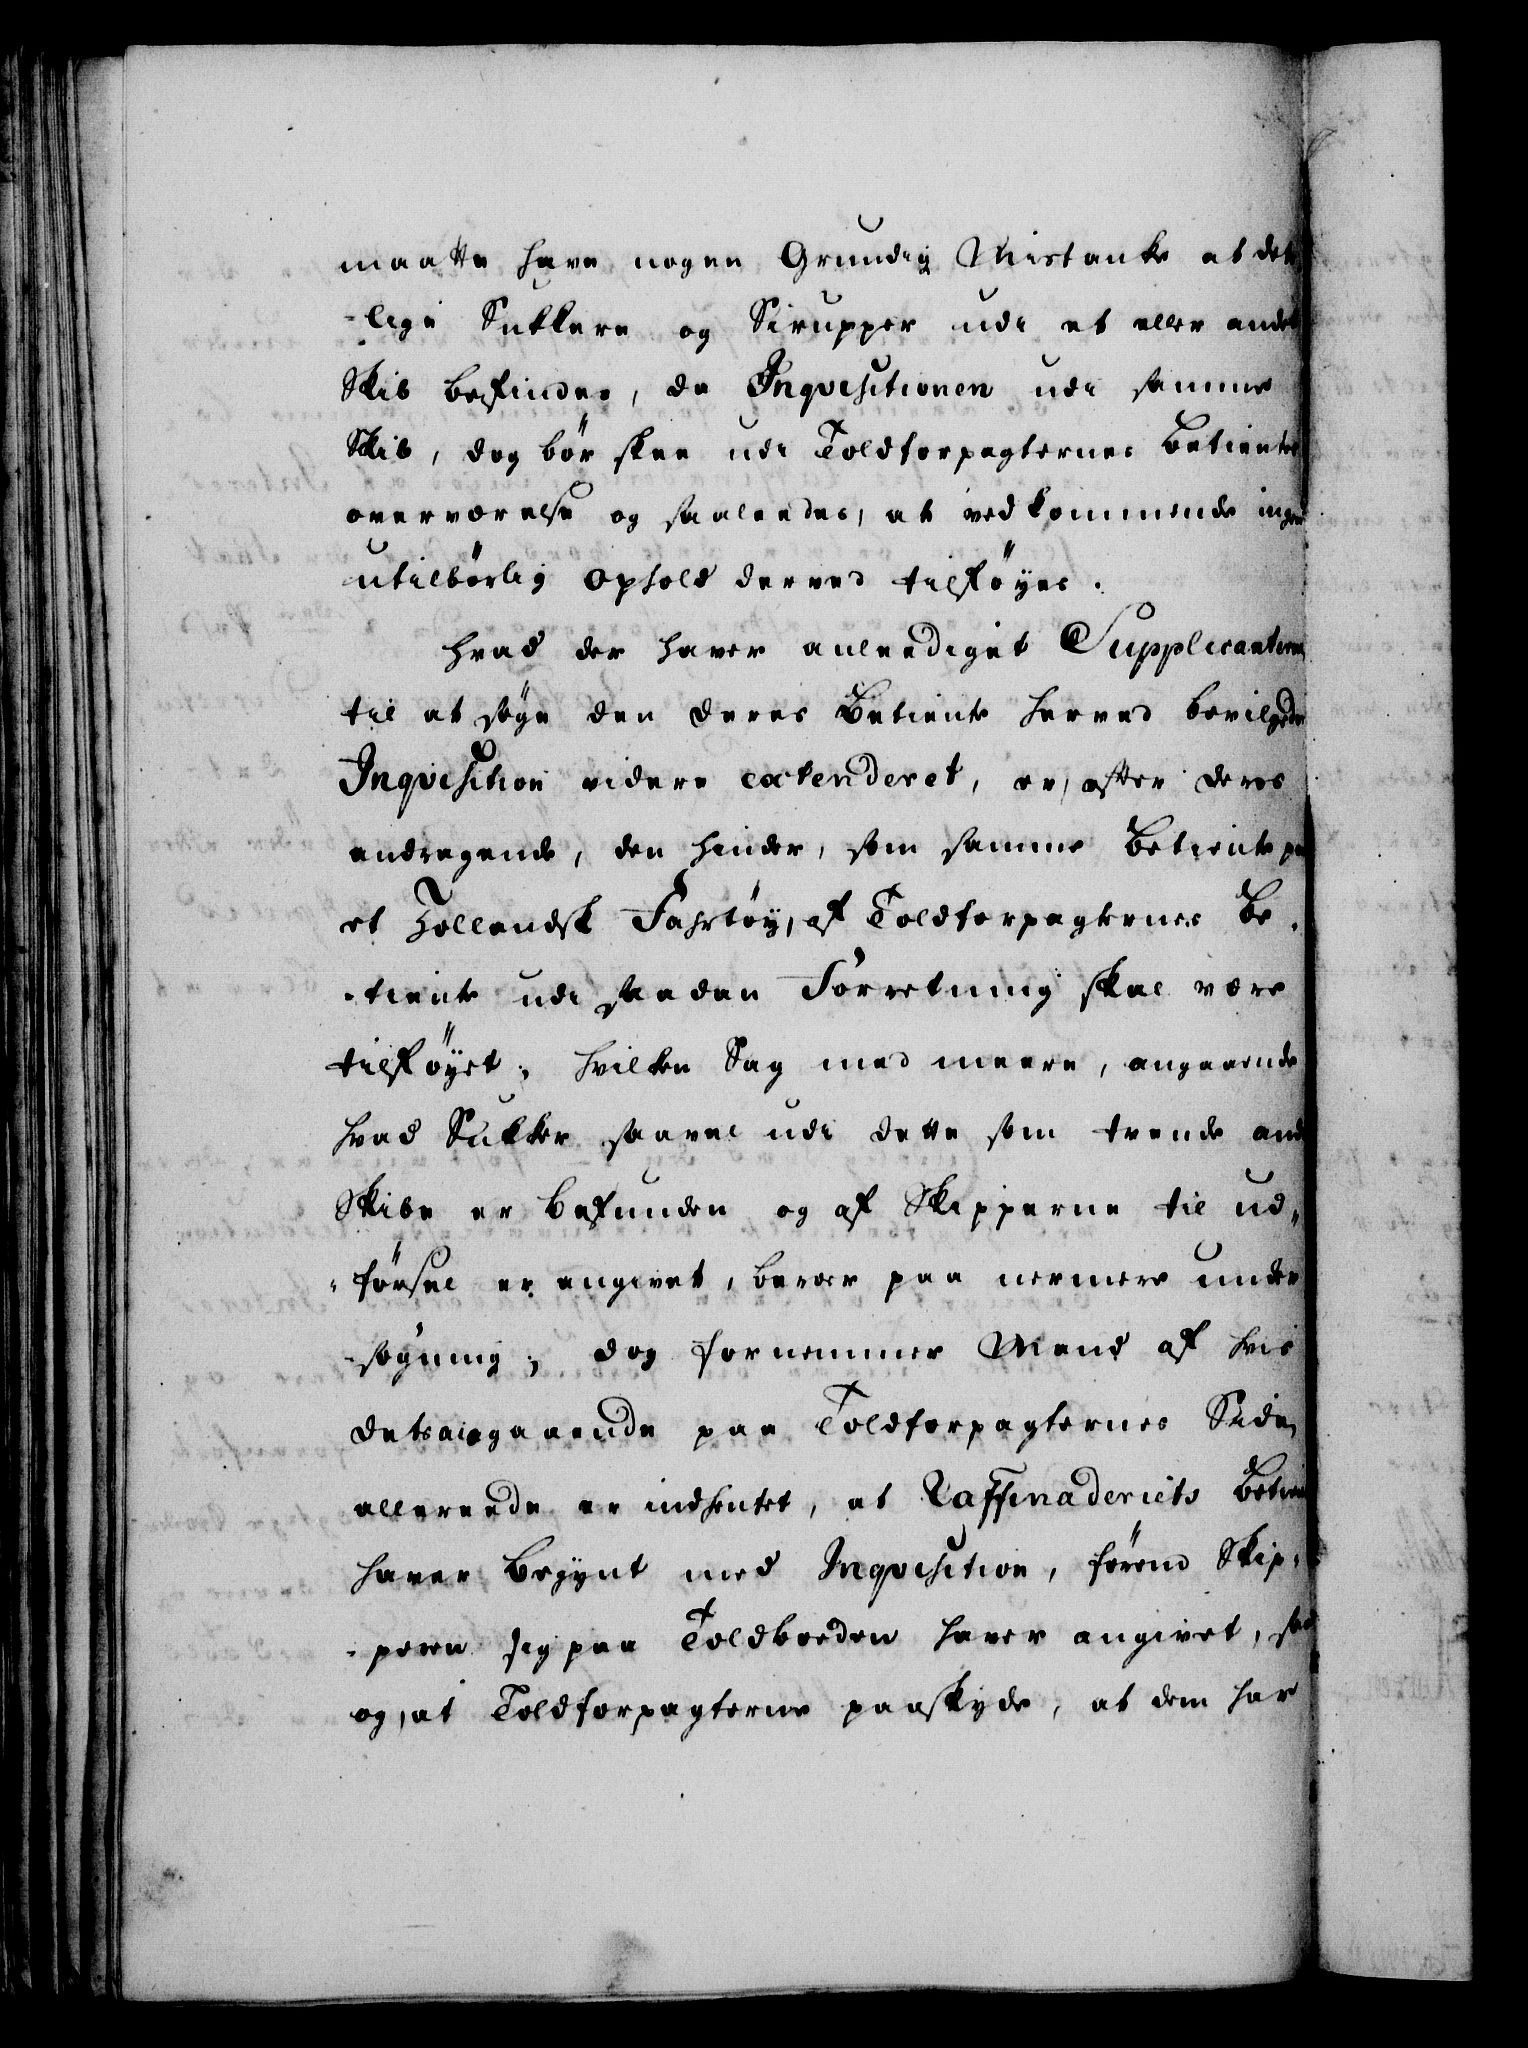 maatte have nogen Grundig Mistanke at det
-lige Sukkere og Sirupper udi et eller andet
Skib befindes, da Inqvisitionen udi samme
Skib, dog bør skee udi Toldforpagternes Betientes
overværelse og saaleedes, at vedkommende ingen
utilbørlig Ophold derved tilføyes.
Hvad der haver anleediget Supplicanterne
til at søge den deres Betiente herved bevilgede
Inqvisition videre extenderet, er, efter deres
andragende, den hinder, som samme Betiente paa
et Hollandsk Fahrtøy, af Toldforpagternes Be-
-tiente udi saadan Forretning skal være
tilføyet; hvilken Sag med meere, angaaende
hvad Sukker saavel udi dette som tvende and
Skibe er befunden og af Skipperne til ud-
-førsel er angivet, beroer paa nermere under
-søgning; dog fornemmer Mand af hvis
detsangaaende paa Toldforpagternes Side,
allereede er indhentet, at Raffinaderiets Betien
haver begynt med Inqvisition, førend Skip-
-peren sig paa Toldboeden haver angivet, saa
og, at Toldforpagterne paaskyde, at dem har